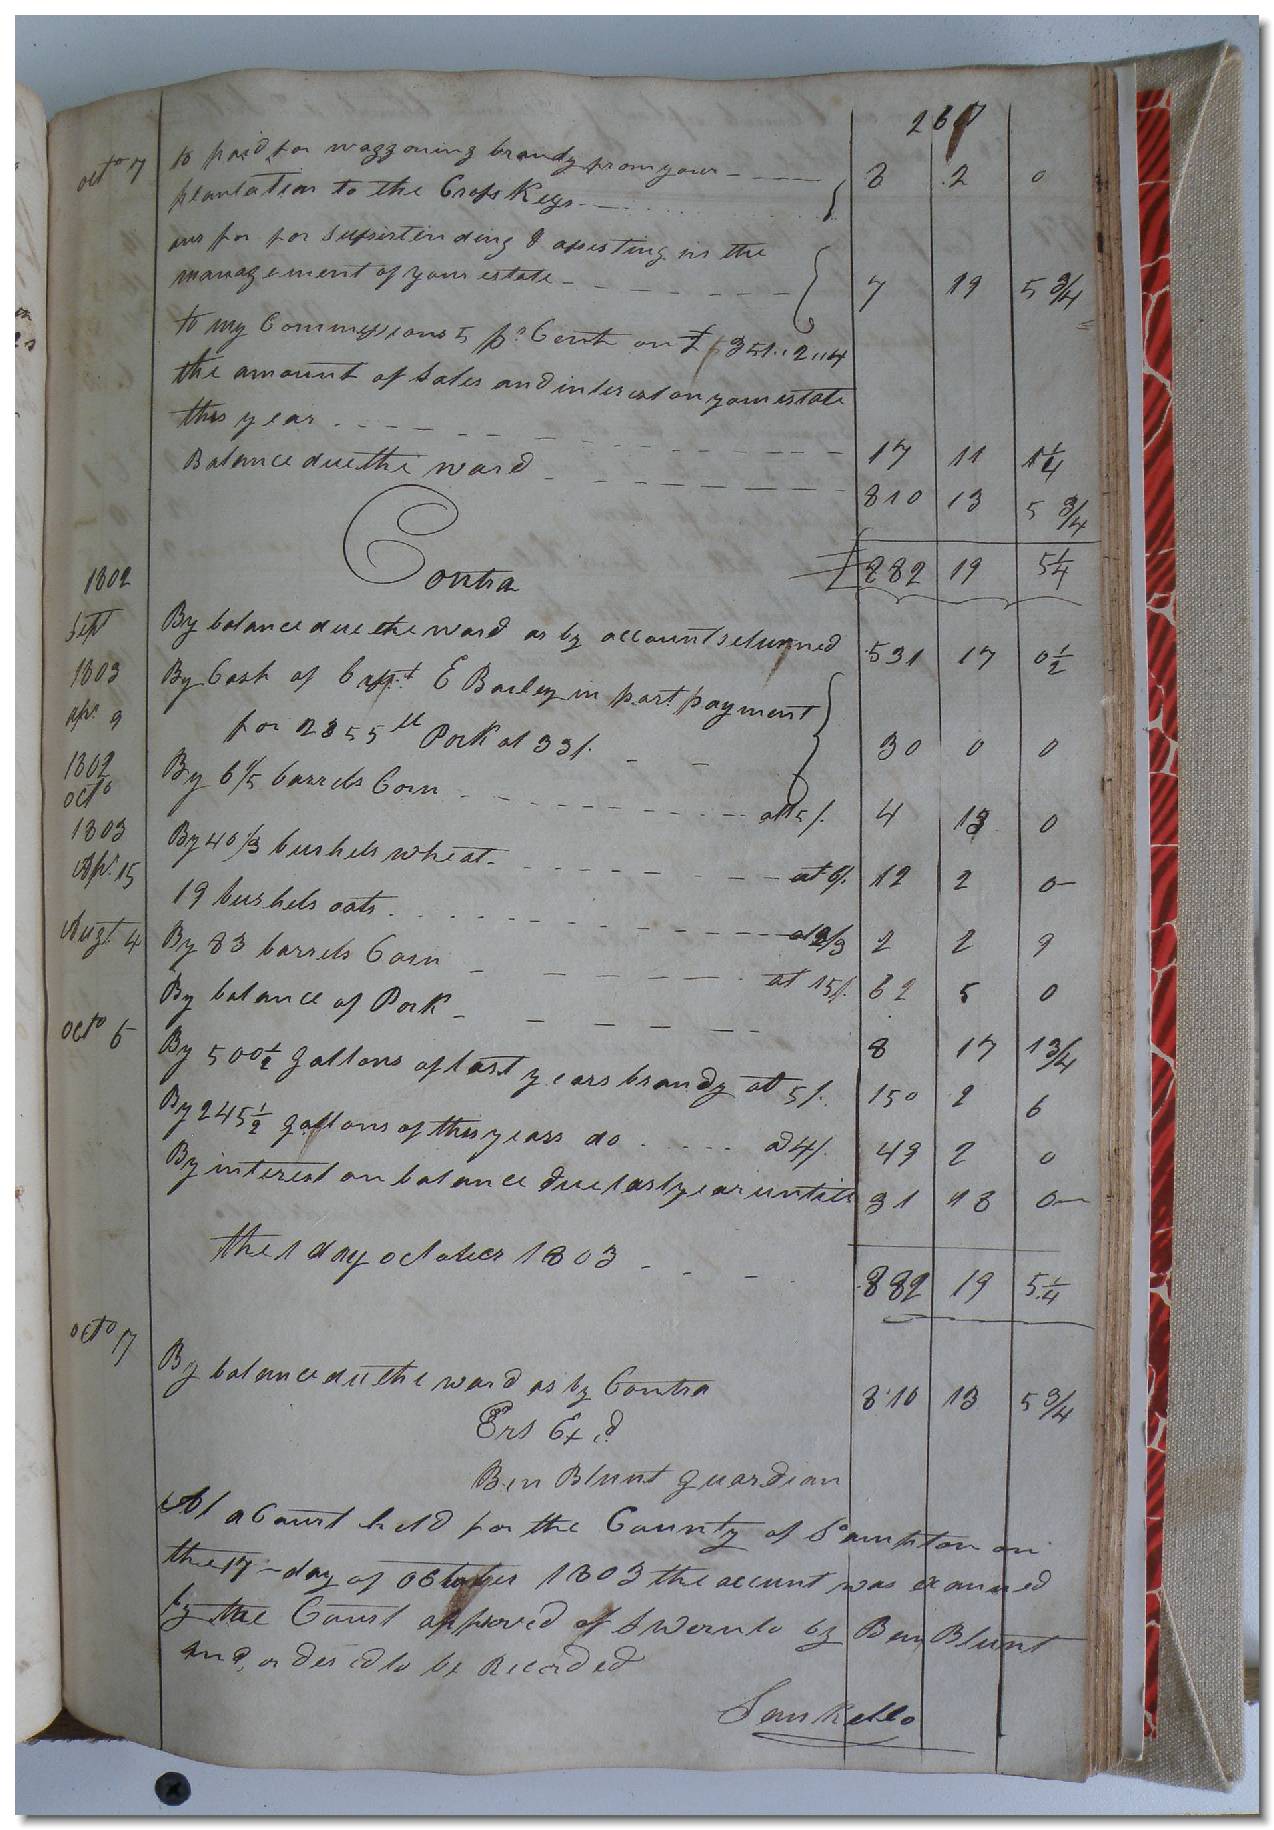 267
octo 7 to paid for waggoning brandy from your - - - 3 2 0
plantation to the Cross Keys
for superintending & assisting in the
management of your estate - - - - - - 7 19 5 3/4
to my Commissions 5 pr Cent on £351..2..4
the amount of Sales and interest on your estate
this year - - - - - - - - 17 11 1 1/4
Balance due the ward - - - - - - 810 13 5 3/4
Contra £882 19 5 1/4
1802
Sept By balance due the ward as by account returned 531 17 0 1/2
1803 By Cash of Capt E Bailey in part payment
apr 9 for 2855 lb Pork at 33/. - - 30 0 0
1802
octo By 6 1/5 barrels Corn - - - - - at 15/. 4 13 0
1803 By 40 1/3 bushels wheat - - - - - at 6/. 12 2 0
Apr. 15 19 bushels oats - - - - - - a 2/3 2 2 9
Augt 4 By 83 barrels Corn - - - - at 15/. 62 5 0
By balance of Pork - - - - - - 8 17 1 3/4
octo 6 By 500 1/2 gallons of last years brandy at 5/. 150 2 6
By 245 1/2 gallons of this years do - - - - a 4/. 49 2 0
By interest on balance due last year untill 31 18 0
the 1 day october 1803 - - -
882 19 5 1/4
octo 17
By balance due the ward as by Contra 810 13 5 3/4
Ers Exd
Ben Blunt guardian
At a Court held for the County of Sounthton on
the 17 - day of October 1803 the account was examined
by the Court approved of Sworn to by Ben Blunt
and ordered to be Recorded
Sam Kello